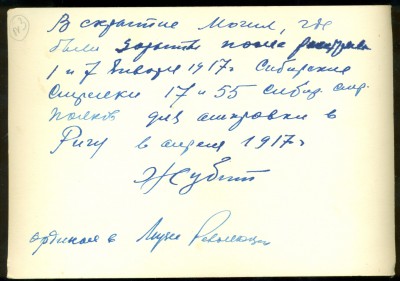 Вскрытие Могил, где
были зарыты после расстрела
1 и 7 Января 1917г Сибирские
Стрелки 17 и 55 Сибир. стр.
полков для отправки в
Ригу в апреле 1917г
оригинал в Музее Революции